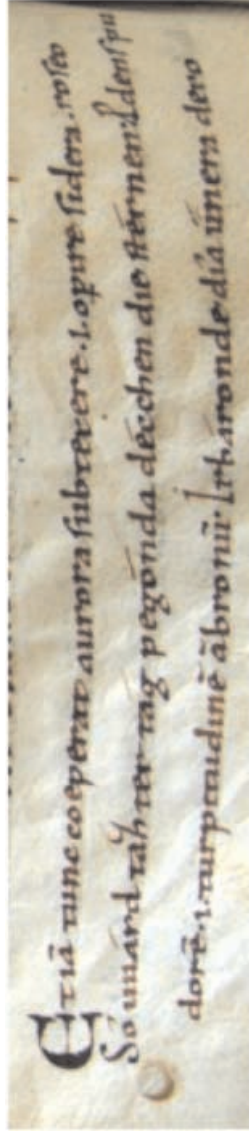 Etiā tunc coeperat aurora subtexere .i. opire sidera. roseo
So uuárd táh ter tág pegónda décchen die stérnen.
dorē .i. turpitudinē Irbáronde día únera dero